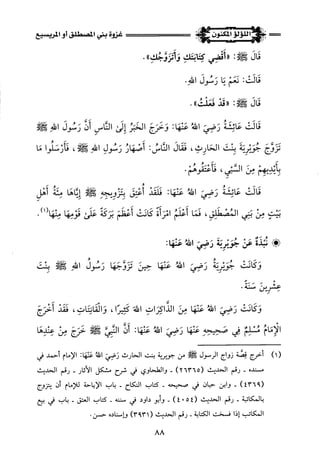 اللؤلؤ المكنون
غزوة بني المصطلق أو المريسيع
قَالَ ﷺ: «أَقْضِي كِتَابَتَكِ وَأَتَزَوَّجُكِ».
قَالَتْ: نَعَمْ يَا رَسُولَ اللهِ.
قَالَ ﷺ: «قَدْ فَعَلْتُ».
قَالَتْ عَائِشَةُ رَضِيَ اللهُ عَنْهَا: وَخَرَجَ الخَبَرُ إِلَى النَّاسِ أَنَّ رَسُولَ اللهِ ﷺ
تَزَوَّجَ جُوَيْرِيَةَ بِنْتَ الحَارِثِ، فَقَالَ النَّاسُ: أَصْهَارُ رَسُولِ اللهِ ﷺ، فَأَرْسَلُوا مَا
بِأَيْدِيهِمْ مِنَ السَّبْيِ، فَأَعْتَقُوهُمْ.
قَالَتْ عَائِشَةُ رَضِيَ اللهُ عَنْهَا: فَلَقَدْ أُعْتِقَ بِتَزْوِيجِهِ ﷺ إِيَّاهَا مِئَةُ أَهْلِ
بَيْتٍ مِنْ بَنِي المُصْطَلِقِ، فَمَا أَعْلَمُ امْرَأَةً كَانَتْ أَعْظَمَ بَرَكَةً عَلَى قَوْمِهَا مِنْهَا(١).
نُبْذَةٌ عَنْ جُوَيْرِيَةَ رَضِيَ اللهُ عَنْهَا:
وَكَانَتْ جُوَيْرِيَةُ رَضِيَ اللهُ عَنْهَا حِينَ تَزَوَّجَهَا رَسُولُ اللهِ ﷺ بِنْتَ
عِشْرِينَ سَنَةً.
وَكَانَتْ رَضِيَ اللهُ عَنْهَا مِنَ الذَّاكِرَاتِ اللهَ كَثِيرًا، وَالقَانِتَاتِ، فَقَدْ أَخْرَجَ
الإِمَامُ مُسْلِمٌ فِي صَحِيحِهِ عَنْهَا رَضِيَ اللهُ عَنْهَا: أَنَّ النَّبِيَّ ﷺ خَرَجَ مِنْ عِنْدِهَا
(١) أخرج قصة زواج الرسول ﷺ من جويرية بنت الحارث رَضِيَ اللهُ عَنْهَا: الإمام أحمد في
مسنده - رقم الحديث (٢٦٣٦٥) - والطحاوي في شرح مشكل الآثار - رقم الحديث
(٤٣١٩) - وابن حبان في صحيحه - كتاب النكاح - باب الإباحة للإمام أن يتزوج
بالمكاتبة - رقم الحديث (٤٠٥٤) - وأبو داود في سننه - كتاب العتق - باب في بيع
المكاتب إذا فسخت الكتابة - رقم الحديث (٣٩٣١) وإسناده حسن.
٨٨